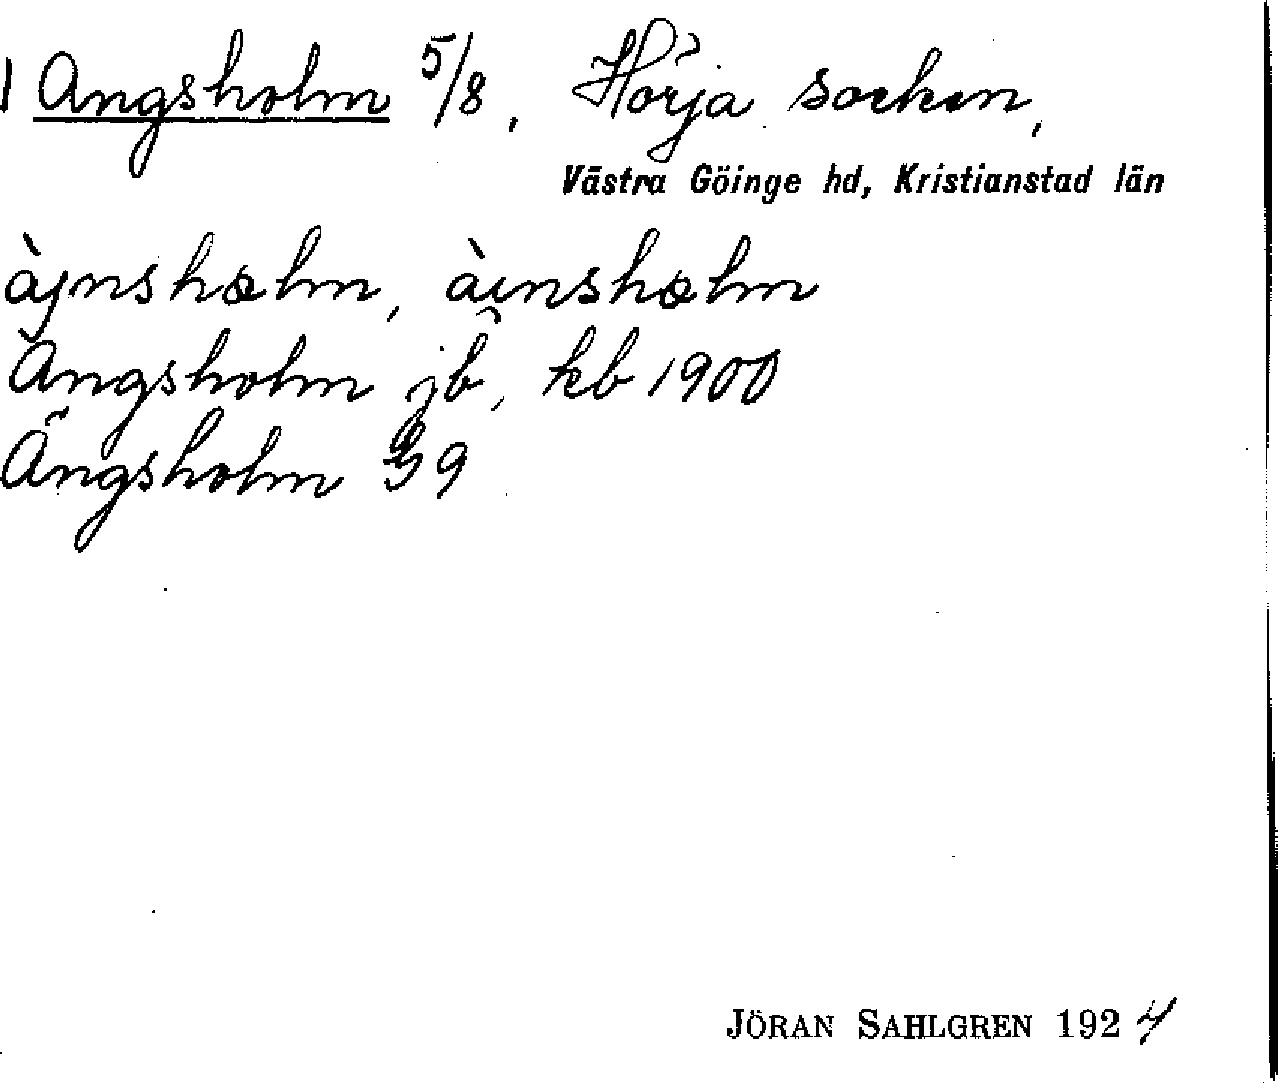 1 Angsholm 5/8, Hörja socken,
Västra Göinge hd, Kristianstad län
àjnshɷlm, àinshɷlm
Angsholm jb, kb 1900
Ängsholm G9
JÖRAN SAHLGREN 1924